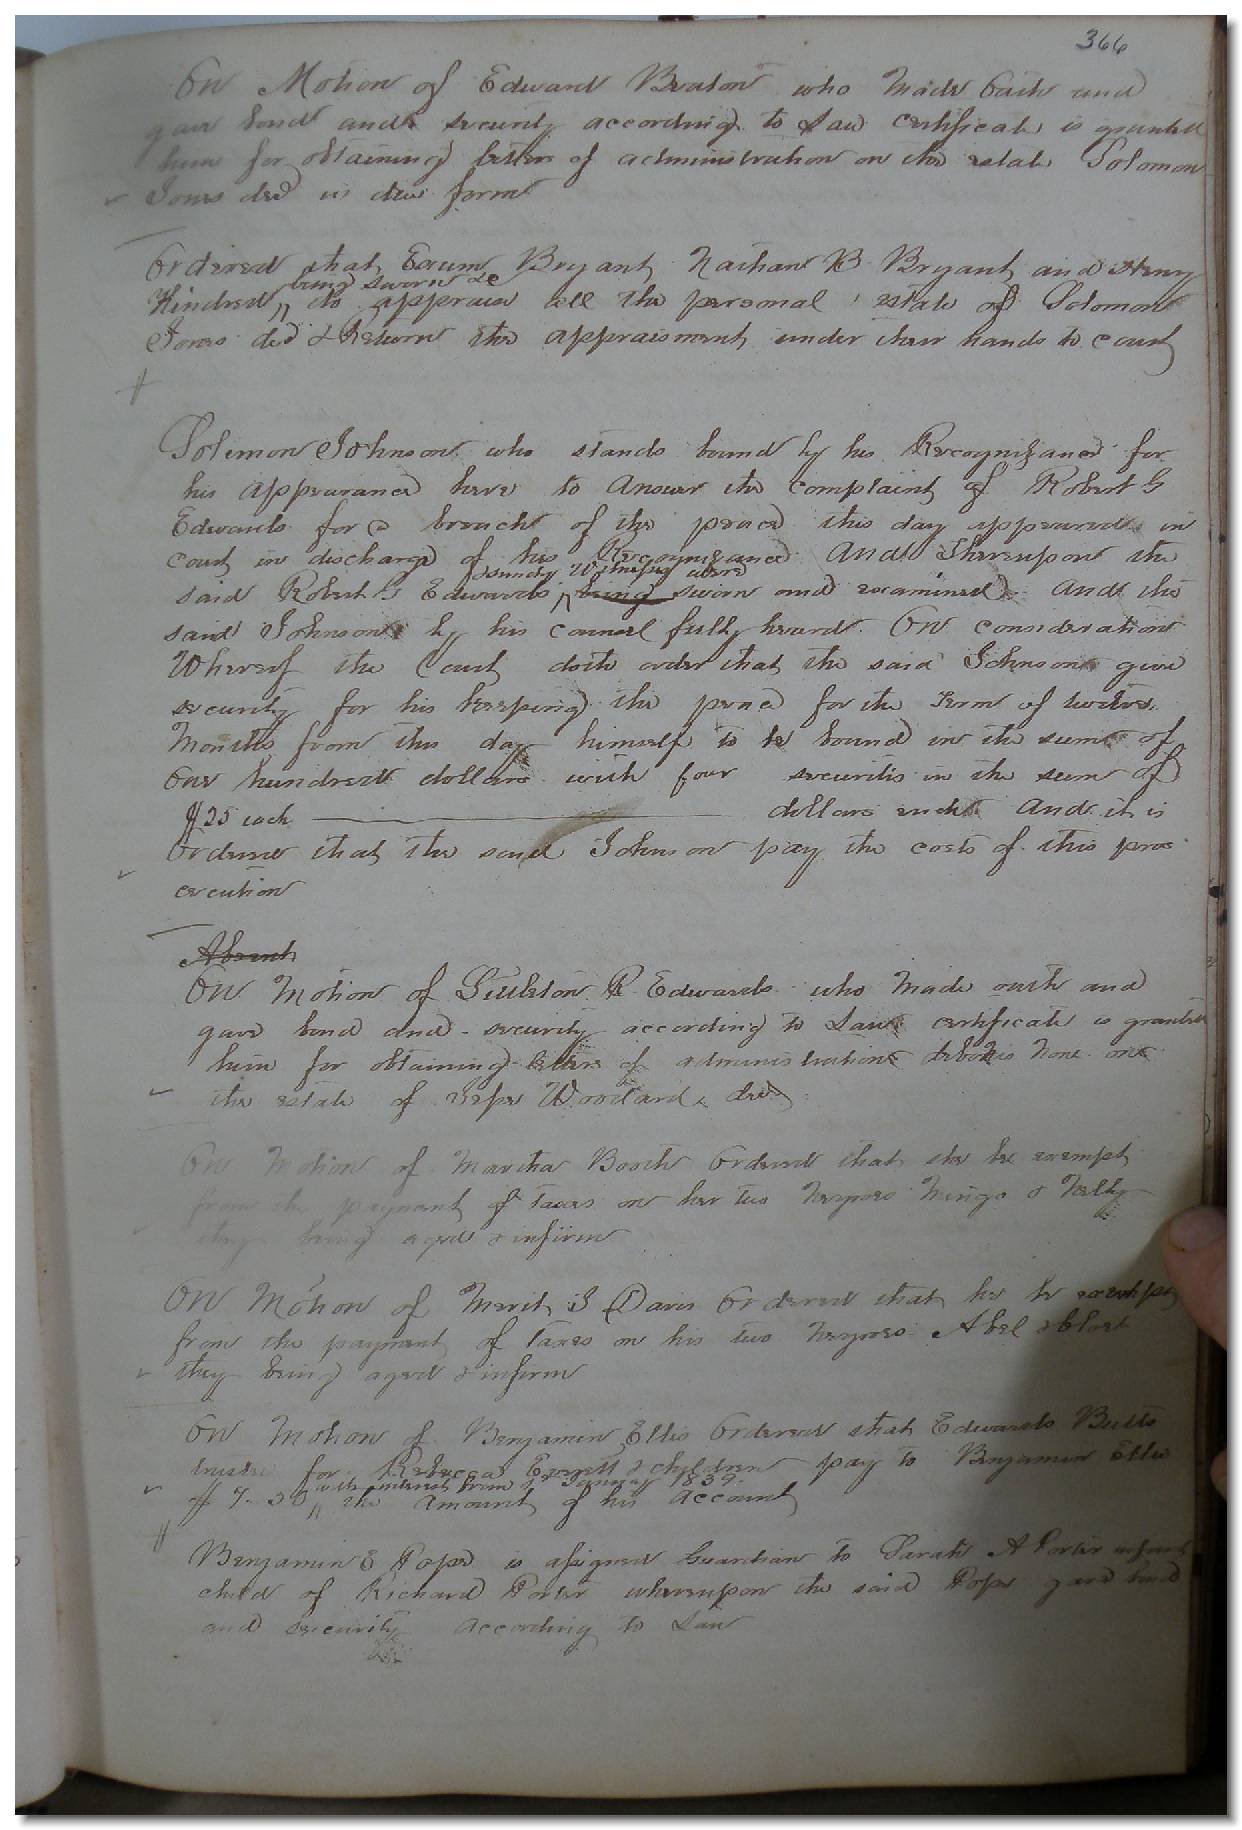 366
On Motion of Edward Beaton who made oath and
gave bond and security according to Law certificate is granted
him for obtaining letters of administration on the estate Solomon
Jones decd in due form
Ordered that Bryant Nathan B Bryant and Henry
being sworn &c
Kindred do appraise all the personal estate of Solomon
Jones decd & Return the appraisment under their hands to court
Solomon Johnson who stands bound by his Recognizance for
his appearance here to Answer the complaint of Robert G
Edwards for a breach of the peace this day appeared in
court in discharge of his Recognizance And Thereupon the
sundry Witnesses were
said Robert G Edwards being sworn and examined And the
said Johnson by his counsel fully heard. On consideration
Whereof the Court doth order that the said Johnson give
security for his keeping the peace for the term of twelve
Months from this day himself to be bound in the sum of
One hundred dollars with four securitis in the sum of
$25 each dollars each And it is
Ordered that the said Johnson pay the costs of this pros
ecution
Absent
On Motion of Littleton R Edwards who made oath and
gave bond and security according to Law certificate is granted
him for obtaining letters of administration debonis none on
the estate of Woodard decd
On Motion of Martha Booth Ordered that she be exempt
from the payment of taxes on her two negroes Mingo & Nelly
they being aged & infirm
On Motion of Merit S Davis Ordered that he be exempt
from the payment of taxes on his two negroes Abel & Cloe
they being aged & infirm
On Motion of Benjamin Ellis Ordered that Edwards Butts
trustee for Rebecca Everett & children pay to Benjamin Ellis
with interest from 1st January 1839.
$7.50 the amount of his account
Benjamin E Pope is assigned Guardian to Sarah A Porter infant
child of Richard Porter whereupon the said Pope gave bond
and security according to Law